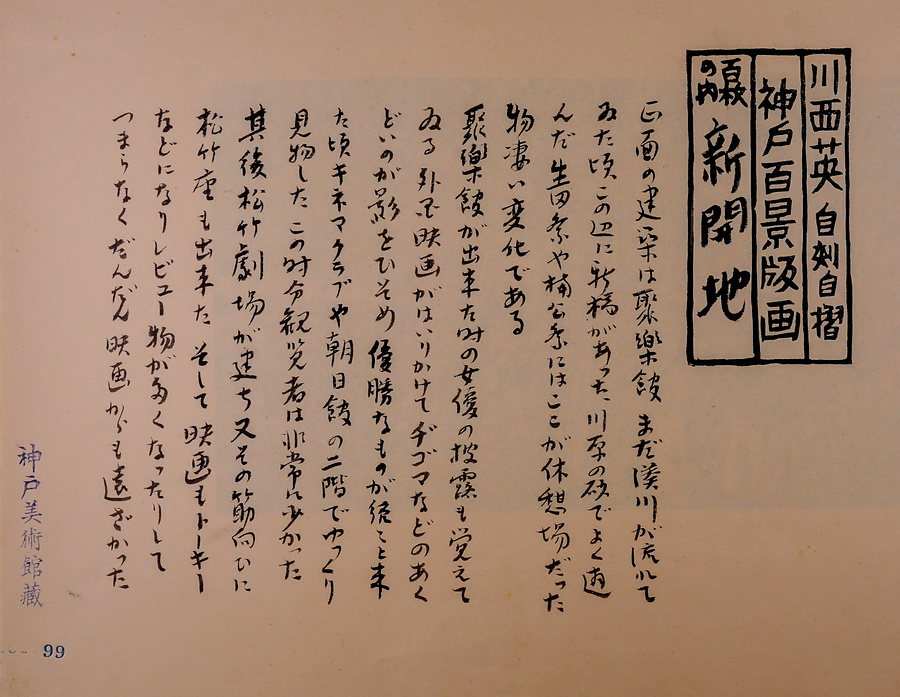 川西英 自刻自摺
神戸百景版画
百枚の内 新開地
正面の建築は聚樂館 まだ湊川が流れて
ゐた頃この辺に新橋があった川原の砂でよく遊
んだ生田祭や楠公祭にはここが休憩場だった
物凄い変化である
聚樂館が出来た时の女優の披露も覚えて
ゐる 外国映画がはいりかけてヂゴマなどのあく
どいのが影をひそめ 優勝なものが続々と来
た頃キネマクラブや朝日館の二階でゆっくり
見物した この时分観覧者は非常に少かった
其後松竹劇場が建ち又その筋向ひに
松竹座も出来た そして映画もトーキー
などになりレビュー物が多くなったりして
つまらなくだんだん映画からも遠ざかった
神戸美術館藏
99